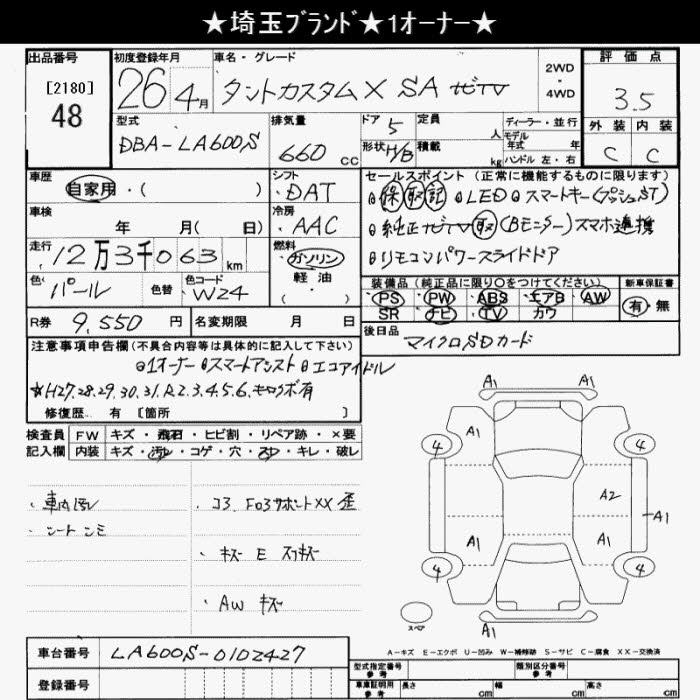 ★埼玉ブランド★1オーナー★
出品番号
[2180]
48
初度登録年月
26年4月
車名・グレード
タントカスタムX SA ナビTV
2WD
・
4WD
評価点
3.5
外装 内装
C C
型式
DBA-LA600S
排気量
660 cc
ドア 5
形状 H/B
定員 人
積載 kg
ディーラー・並行
モデル
年式 年
ハンドル 左・右
車歴
自家用・( )
シフト
DAT
車検
年 月( 日)
冷房
AAC
走行
12万3千063 km
燃料
ガソリン
軽油
・( )
色
パール
色替
色コード
W24
セールスポイント(正常に機能するものに限ります)
保 取 記 LED スマートキー(プッシュST)
純正ナビTV 取 (Bモニター) スマホ連携
リモコンパワースライドドア
装備品(純正品に限り○をつけてください)
PS PW ABS エアB AW
SR ナビ TV カワ
新車保証書
有・無
R券 9,550 円
名変期限 月 日
後日品
マイクロSDカード
注意事項申告欄(不具合内容等は具体的に記入して下さい)
1オーナー スマートアシスト エコアイドル
☆H27.28.29.30.31.R2.3.4.5.6.キロクボ有
修復歴・ 有 〔箇所 〕
検査員 FW キズ・飛石・ヒビ割・リペア跡・×要
記入欄 内装 キズ・汚レ・コゲ・穴・スレ・キレ・破レ
・車内汚レ
・シートシミ
・コ3. F03サポートXX 歪
・キズ E スリキズ
・AW キズ
A1
A1 A1
4 4
A2
A1
A1 A1
4 4
A1
スペア
A-キズ E-エクボ U-凹み W-補修跡 S-サビ C-腐食 XX-交換済
車台番号 LA600S-0102427
登録番号
型式指定番号
参考
類別区分番号
参考
車庫証明用
参考
長さ cm 幅 cm 高さ cm